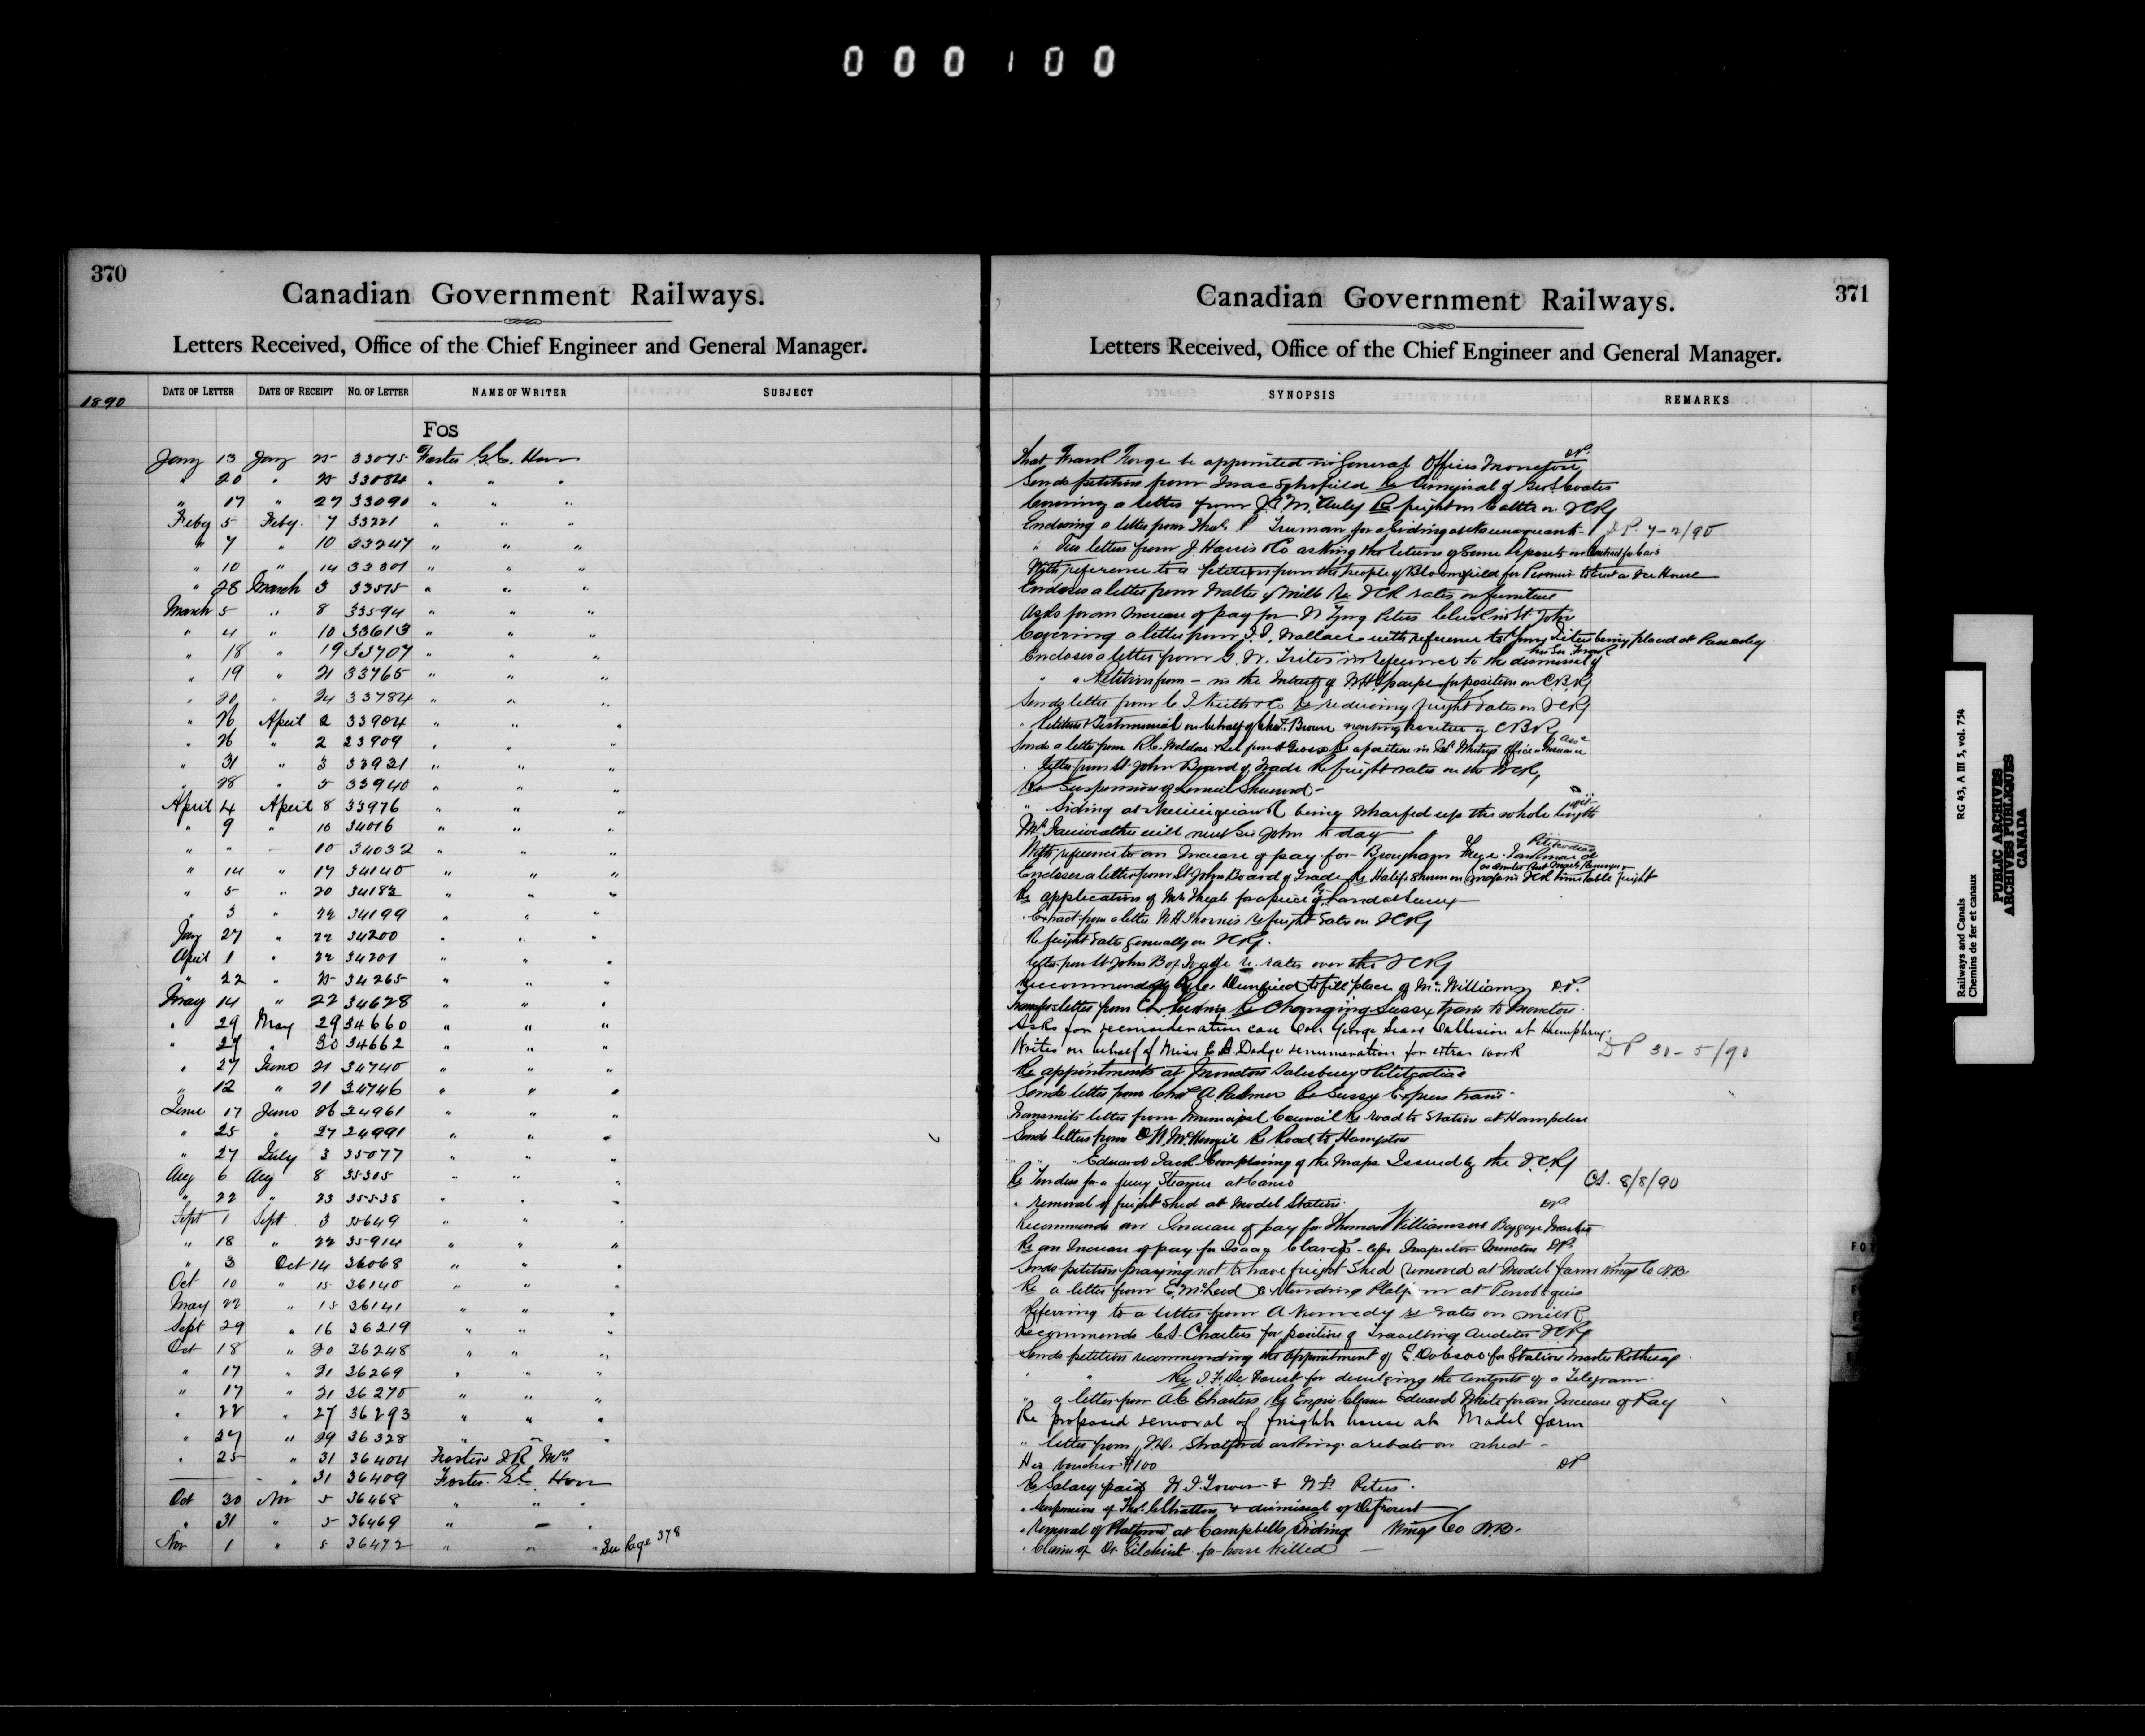 000100
370
Canadian Government Railways.
Letters Received, Office of the Chief Engineer and General Manager.
1890
DATE OF LETTER DATE OF RECEIPT NO. OF LETTER NAME OF WRITER SUBJECT
Fos
Jany 13 Jany 25 33075 Foster G.E. Hon
" 20 " 25 33084 " " "
" 17 " 27 33090 " " "
Feby 5 Feby. 7 33221 " " "
" 7 " 10 33247 " " "
" 10 " 14 33301 " " "
" 28 March 3 33515 " " "
March 5 " 8 33594 " " "
" 4 " 10 33613 " " "
" 18 " 19 33707 " " "
" 19 " 21 33765 " " "
" 20 " 24 33784 " " "
" 26 April 2 33904 " " "
" 26 " 2 23909 " " "
" 31 " 3 33921 " " "
" 28 " 5 33940 " " "
April 4 April 8 33976 " " "
" 9 " 10 34016 " " "
" " - 10 34032 " " "
" 14 " 17 34140 " " "
" 5 " 20 34182 " " "
" 3 " 22 34199 " " "
Jany 27 " 22 34200 " " "
April 1 " 22 34201 " " "
" 22 " 25 34265 " " "
May 14 " 22 34628 " " "
" 29 May 29 34660 " " "
" 27 " 30 34662 " " "
" 27 June 21 34740 " " "
" 12 " 21 34746 " " "
June 17 June 26 24961 " " "
" 25 " 27 24991 " " "
" 27 July 3 35077 " " "
Aug 6 Aug 8 35305 " " "
" 22 " 23 35535 " " "
Sept 1 Sept 3 35649 " " "
" 18 " 22 35914 " " "
" 3 Oct 14 36068 " " "
Oct 10 " 15 36140 " " "
May 22 " 15 36141 " " "
Sept 29 " 16 36219 " " "
Oct 18 " 20 36248 " " "
" 17 " 21 36269 " " "
" 17 " 21 36270 " " "
" 22 " 27 36293 " " "
" 27 " 29 36328 " " "
" 25 " 31 36404 Foster J R Mrs
— - " 31 36409 Foster. G.E. Hon
Oct 30 Nov 5 36468 " " "
" 31 " 5 36469 " - "
Nov 1 " 5 36472 " " " See Page 378
371
Canadian Government Railways.
Letters Received, Office of the Chief Engineer and General Manager.
SYNOPSIS REMARKS
That Frank be appointed in General Offices Moncton DP.
Sends petition from Isaac Schofield Re dismissal of
Covering a letter from McAuly Re freight on Cattle on ICRy
Enclosing a letter from P Truman for a Siding DP. 7-2/90
" Two letters from J Harris & Co asking the return of Some deposits on Contract for Cars
With reference to a Petition from the people of Bloomfield for Permission to erect a Ice House
Encloses a letter from Walter Mills Re ICR rates on furniture
Asks for an Increase of pay for Peters Clerk in St John
Covering a letter from Wallace with reference to being placed at
Encloses a letter from G. W. Trites in reference to the dismissal of his Son Frank
" " Petition from - in the Interest of for position on C.B.Ry
Sends letter from & Co Re reducing freight rates on ICRy
" Petition & Testimonial on behalf of Brown wanting position on CBRy
Sends a letter from R.C. Weldon
" letter from St John Board of Trade Re freight rates on the ICR,
Re Suspension of
" Siding at being wharfed up the whole length
Mr Fairweather will meet Sir John to day
With reference to an Increase of pay for Petitcodiac
Encloses a letter from St John Board of Trade Re Halifax
Re application of Mr for a piece of Land at Sussex
" Extract from a letter W H Thorne's Re freight rates on ICRy
Re freight rates generally on ICRy.
letter from St Johns B of Trade re rates over the ICRy
Recommending to fill place of McWilliams DP.
letter from Re Changing Sussex train to Moncton.
Asks for reconsideration case Con George Sears Collision at
Writes on behalf of Miss Dodge renumeration for extra work DP 31-5/90
Re appointments at Moncton Salesbury & Petitcodiac
Sends letter from Chas A. Palmer Re Sussex Express train-
Transmits letter from Municipal Council Re road to Station at Hampden
Sends letters from McKenzie Re Road to Hampton
" " " Edward Jack Complaining of the Maps Issued by the I.C.Ry
Re Tenders for a ferry Steamer at Canso CS. 8/8/90
" removal of freight Shed at Model Station. DP.
Recommends an Increase of pay for Thomas Williamson Baggage Master
Re an Increase of pay for Isaac Inspector Moncton DP.
Sends petition praying not to have freight Shed removed at Model farm Kings Co N.B.
Re a letter from E. McLeod Re extending Platform at Penobsquis
Referring to a letter from A Kennedy re rates on milk
Recommends C.S. Charters for position of Travelling Auditor ICRy
Sends petition recommending the appointment of E. Dobson for Station Master Rothesay.
" " Re Forest for divulging the Contents of a Telegram.
" a letter from A C Charters, Re Engine Cleaner Edward White for an Increase of Pay
Re proposed removal of freight house at Model farm
" letter from Stratford asking a rebate on wheat -
Her voucher $100 DP
Re Salary paid & Peters.
" Suspension of Thos. Stratton & dismissal of DeForest
" removal of Platform at Campbells Siding Kings Co N.B.
" Claim of Dr. Gilchrist for horse killed —
Railways and Canals RG 43, A III 5, vol. 754
Chemins de fer et canaux
PUBLIC ARCHIVES
ARCHIVES PUBLIQUES
CANADA